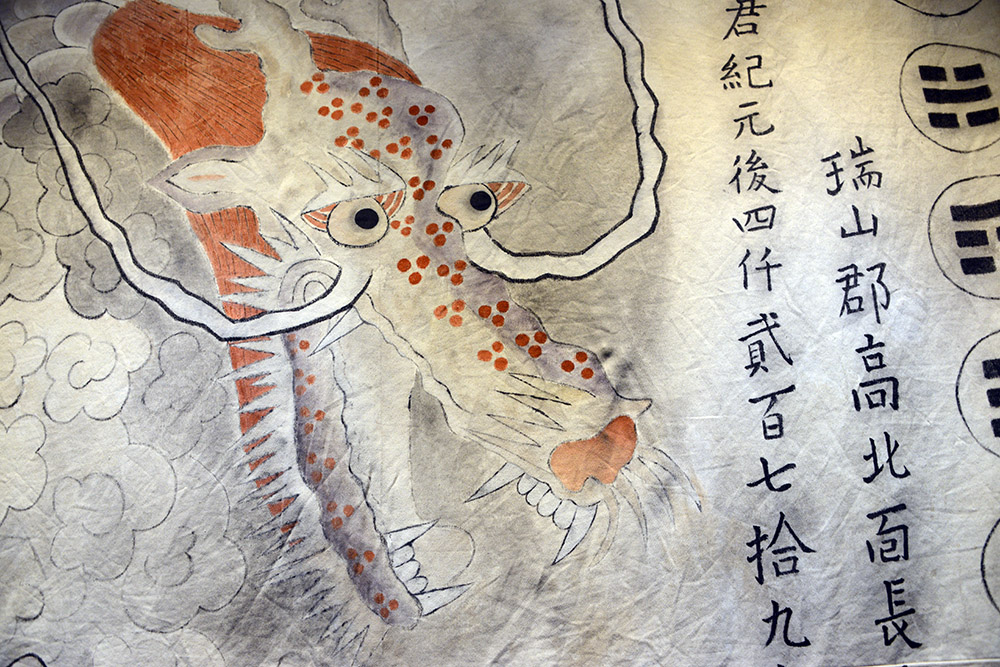 瑞山郡高北面長
君紀元後四仟貳百七拾九